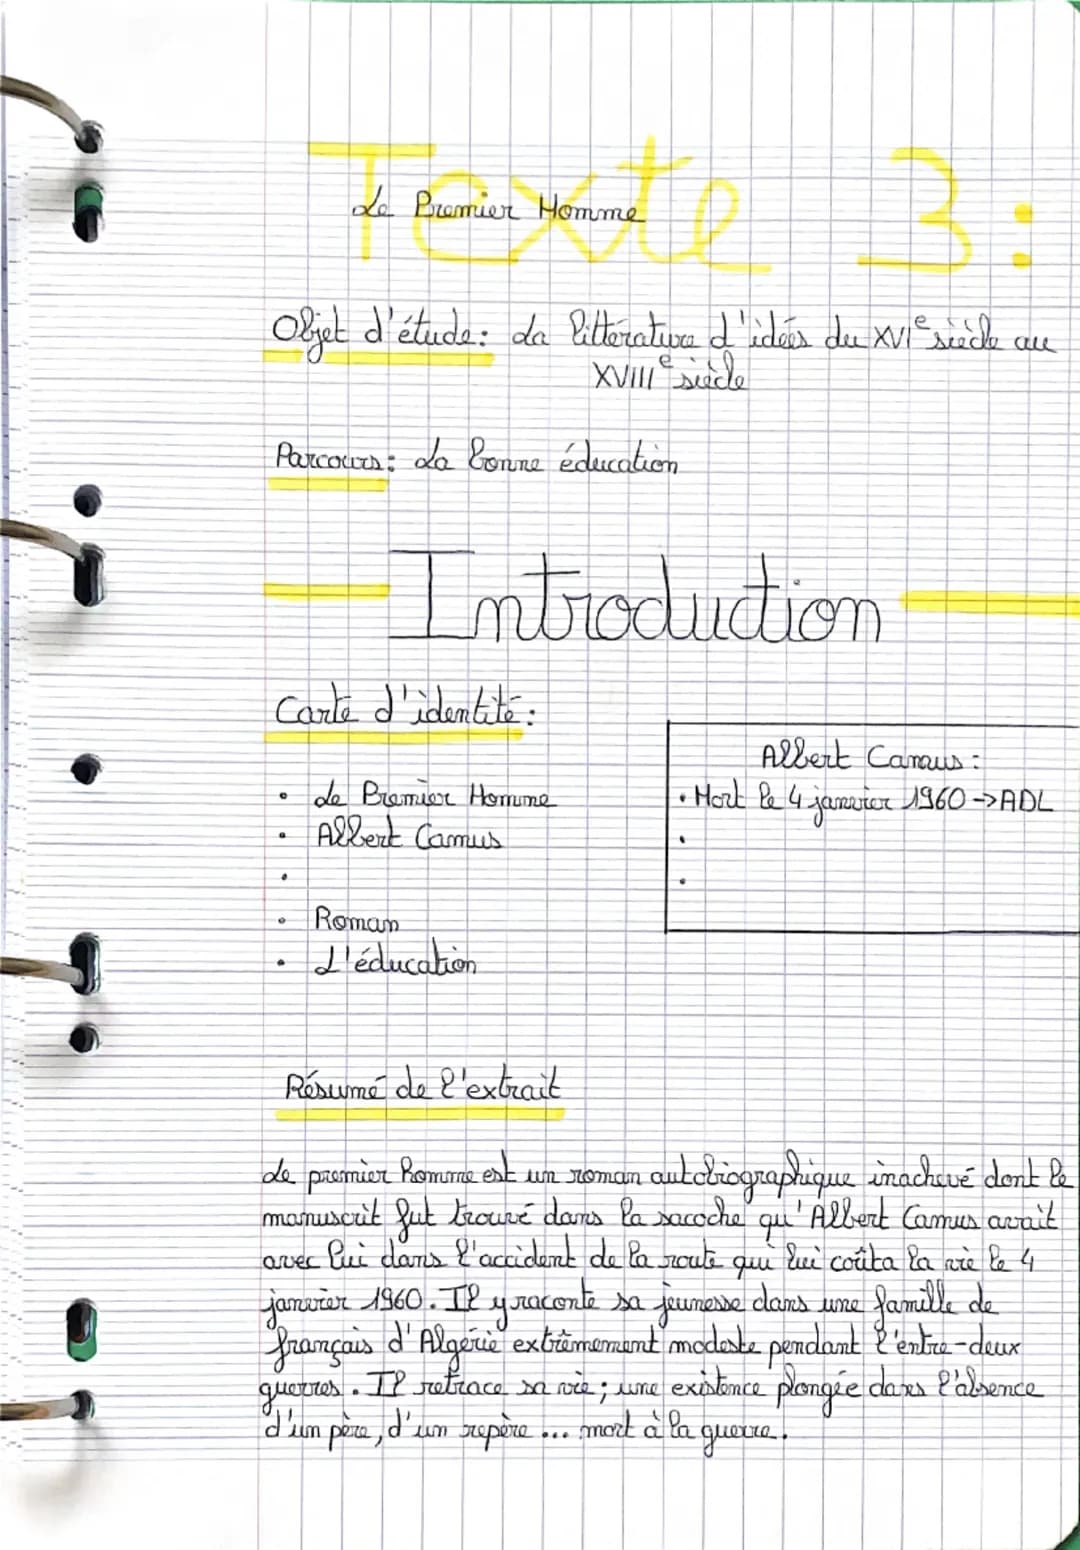 Texte 3:
Le Premier Homme
Objet d'étude: La littérature d'idées du XVIe siècle au
XVIIIe siècle
Parcours: La bonne éducation
Introduction
Carte d'identité:
• Le Premier Homme
• Albert Camus
•
• Roman
• L'éducation
Albert Camus:
• Mort le 4 janvier 1960 ->ADL
•
•
Résumé de l'extrait
Le premier homme est un roman autobiographique inachevé dont le
manuscrit fut trouvé dans la sacoche qu'Albert Camus avait
avec lui dans l'accident de la route qui lui coûta la vie le 4
janvier 1960. Il y raconte sa jeunesse dans une famille de
français d'Algérie extrêmement modeste pendant l'entre-deux
guerres. Il retrace sa vie; une existence plongée dans l'absence
d'un père, d'un repère ... mort à la guerre.